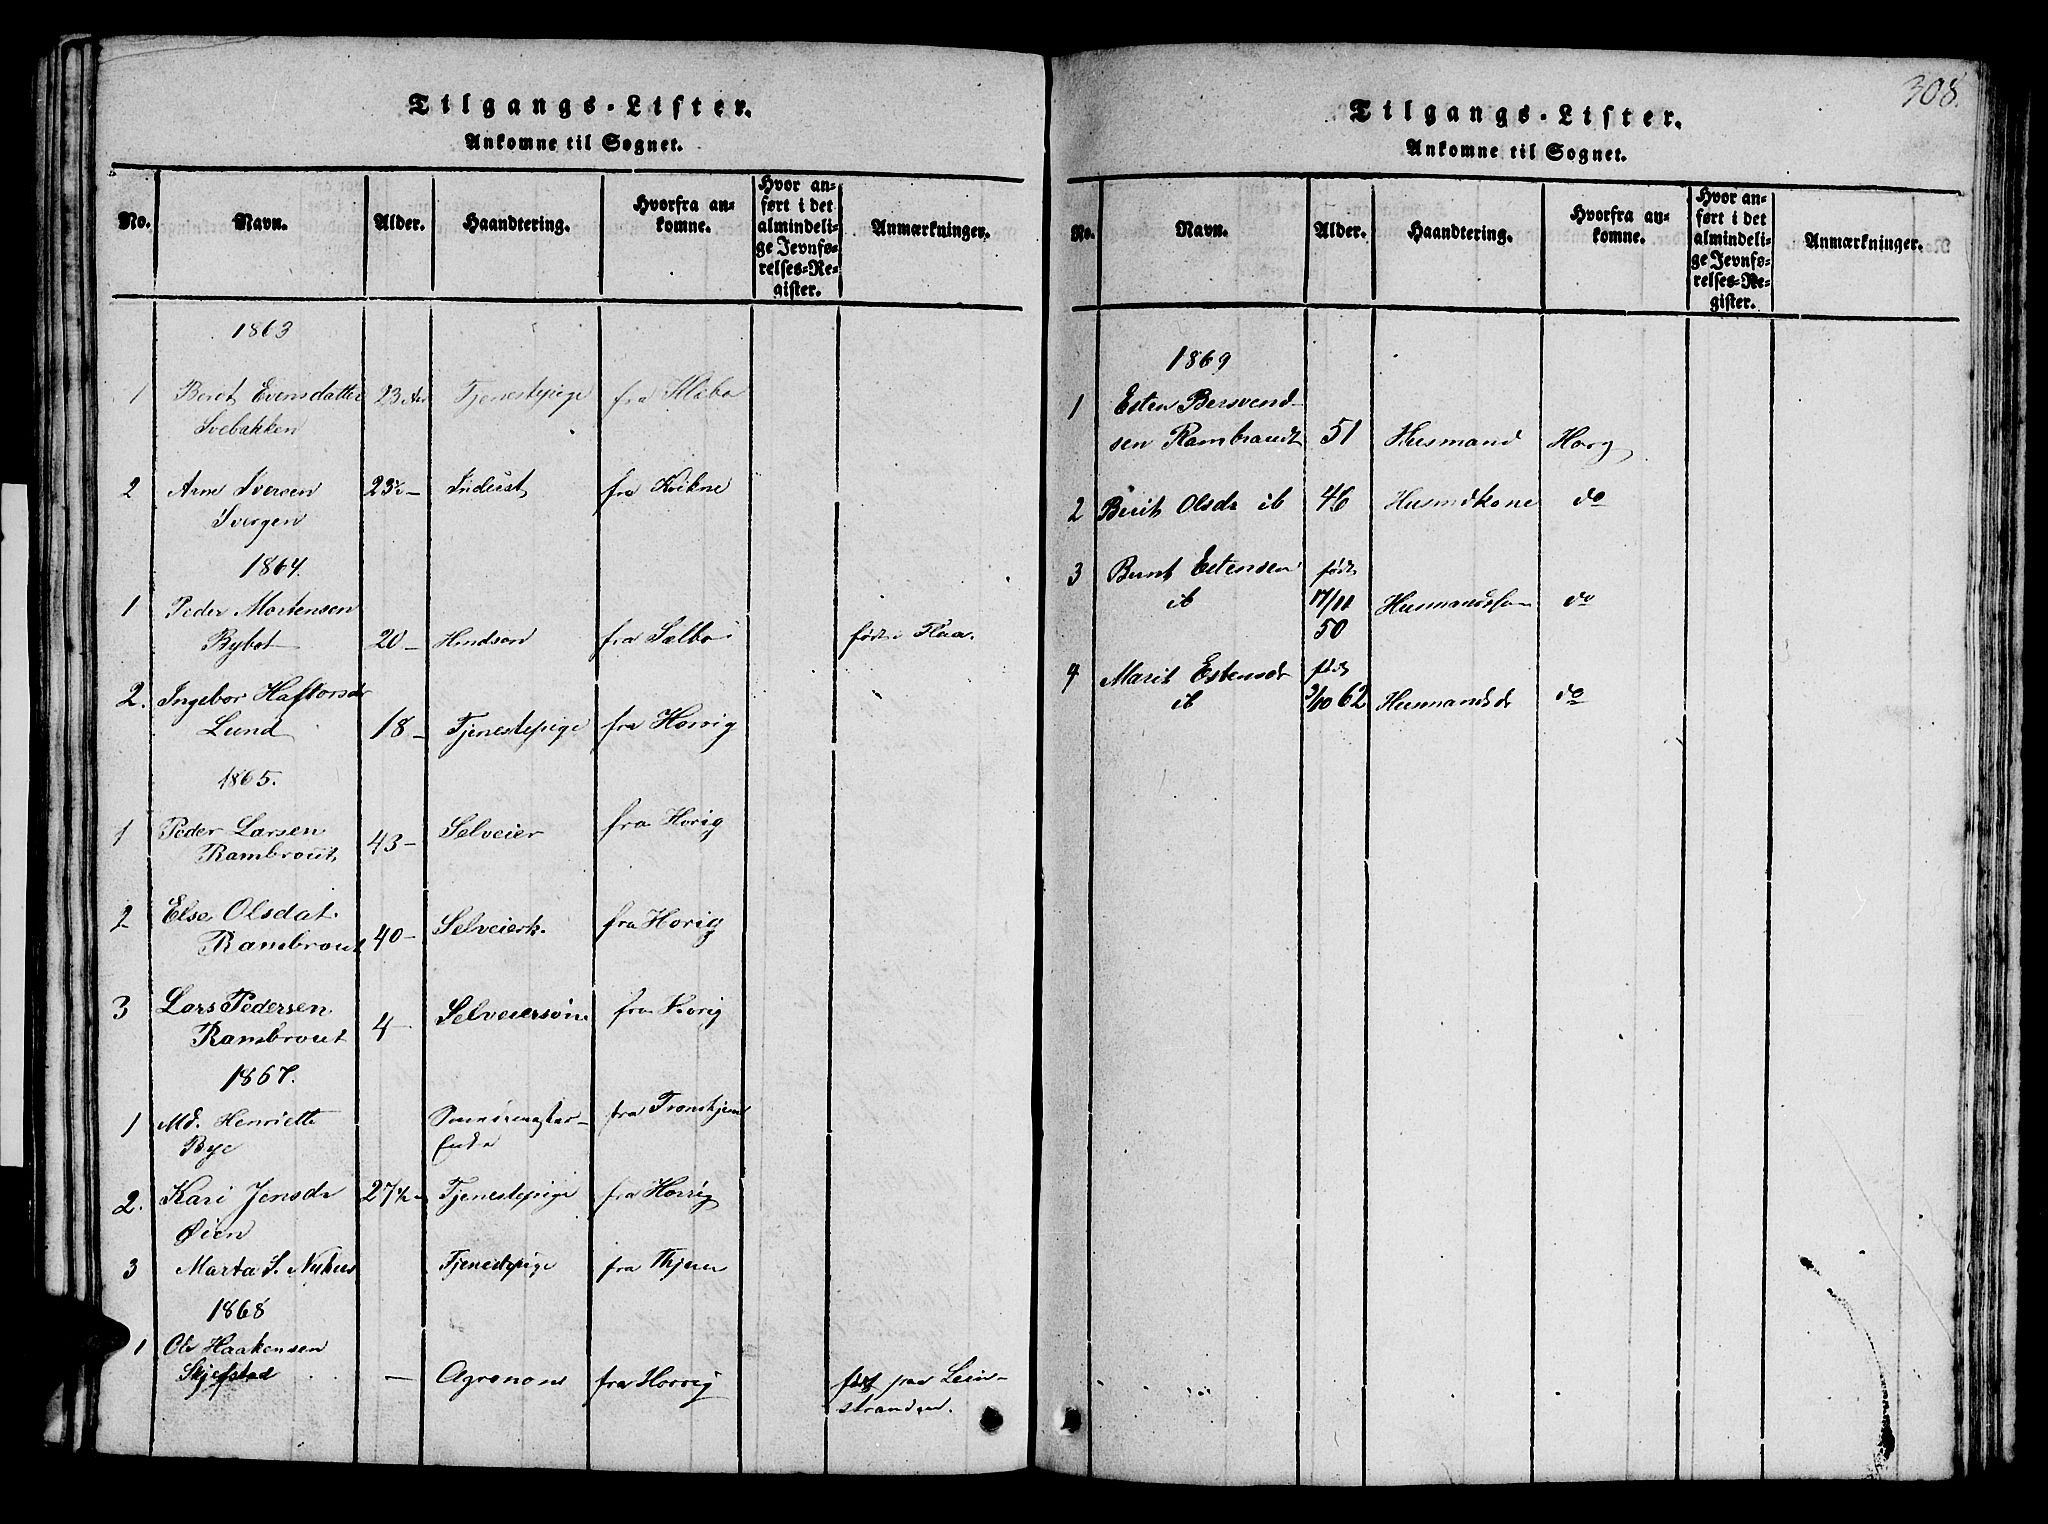 Tilgangs-Lister.
Ankomne til Sognet.
No. Navn. Alder. Haandtering. Hvorfra ankomne. Hvor anført i det almindelige Jevnførelses-Register. Anmærkninger.
1863
1 Berit Evensdatter 23 Tjenestepige fra Klæbo
Svebakken
2 Arne Iversen 23½ – Inderst fra Kvikne
1864.
1 Peder Mortensen
20 – fra Sælbo født i Flaa.
2. Ingebor Haftorsdr
Lund 18 – Tjenestepige fra Horrig
1865.
1 Peder Larsen Selveier fra Horig
Rambrout 43 –
2 Else Olsdat. Selveierk. fra Horig
Rambrout 40 –
3 Lars Pedersen Selveiersøn fra Horig
Rambrout 4 –
1867.
1 Md. Henriette fra Tronhjem
Bye Enke
2. Kari Jensdr 27½ Tjenestepige fra Horrig
Øien
3 Marta S. Tjenestepige fra Thjem
1868
1 Ole Haakensen
Skjefstad – Agronom fra Horrig født paa Lein-
stranden.
308.
Tilgangs-Lister.
Ankomne til Sognet.
No. Navn. Alder. Haandtering. Hvorfra ankomne. Hvor anført i det almindelige Jevnførelses-Register. Anmærkninger.
1869
1 Esten Bersvend-
sen Rambrandt 51 Husmand Horg
2 Berit Olsdr ib 46 Husmdkone do
3 Bernt Estensen født
ib 17/11 Husmandssøn do
50
4 Marit Estensdr født
ib 3/10 62 Husmandsdr do